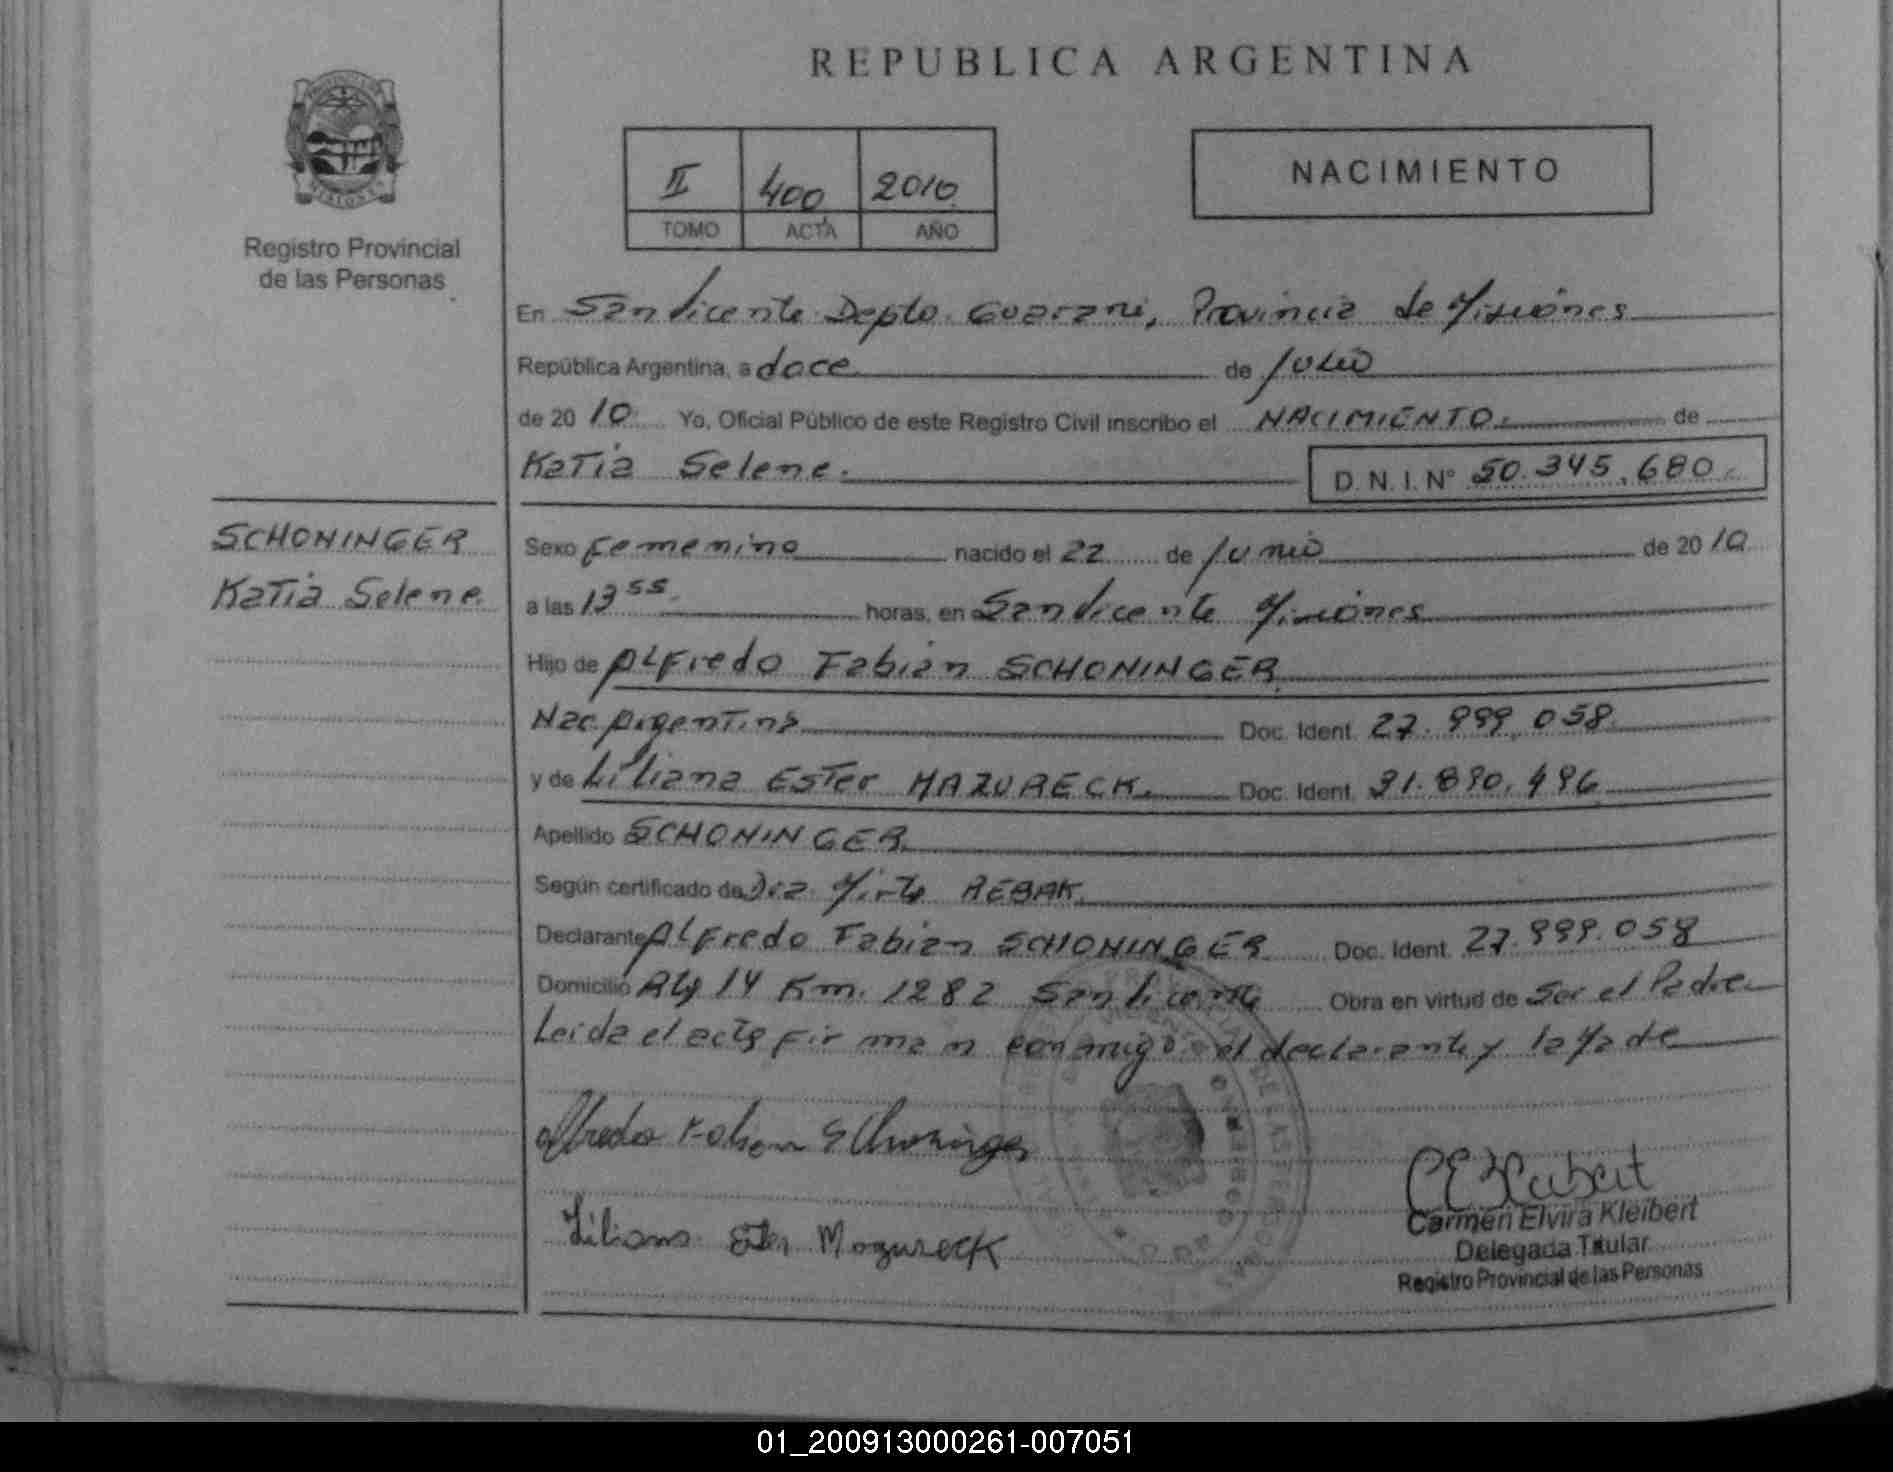 REPUBLICA ARGENTINA
PROVINCIA DE
MISIONES
Registro Provincial
de las Personas
II 400 2010
TOMO ACTA AÑO
NACIMIENTO
En San Vicente Depto. Guarani, Provincia de Misiones
República Argentina, a doce de Julio
de 2010 Yo, Oficial Público de este Registro Civil inscribo el NACIMIENTO. de
Katia Selene. D.N.I.Nº 50.345.680.
SCHONINGER
Katia Selene.
Sexo Femenino nacido el 22 de Junio de 2010
a las 13 55 horas, en San Vicente Misiones
Hijo de ALFredo Fabian SCHONINGER
Nac. Argentina Doc. Ident. 27.999.058
y de Liliana Ester MAZURECK. Doc. Ident. 31.890.496
Apellido SCHONINGER
Según certificado de Dra. Mirta REBAK.
Declarante ALFredo Fabian SCHONINGER Doc. Ident. 27.999.058
Domicilio Ruta 14 Km. 1282 San Vicente Obra en virtud de Ser el Padre
Leida el acta Firman conmigo el declarante y la Madre
Alfredo Fabian Schoninger
Liliana Ester Mazureck
Carmen Elvira Kleibert
Delegada Titular
Registro Provincial de las Personas
01_200913000261-007051